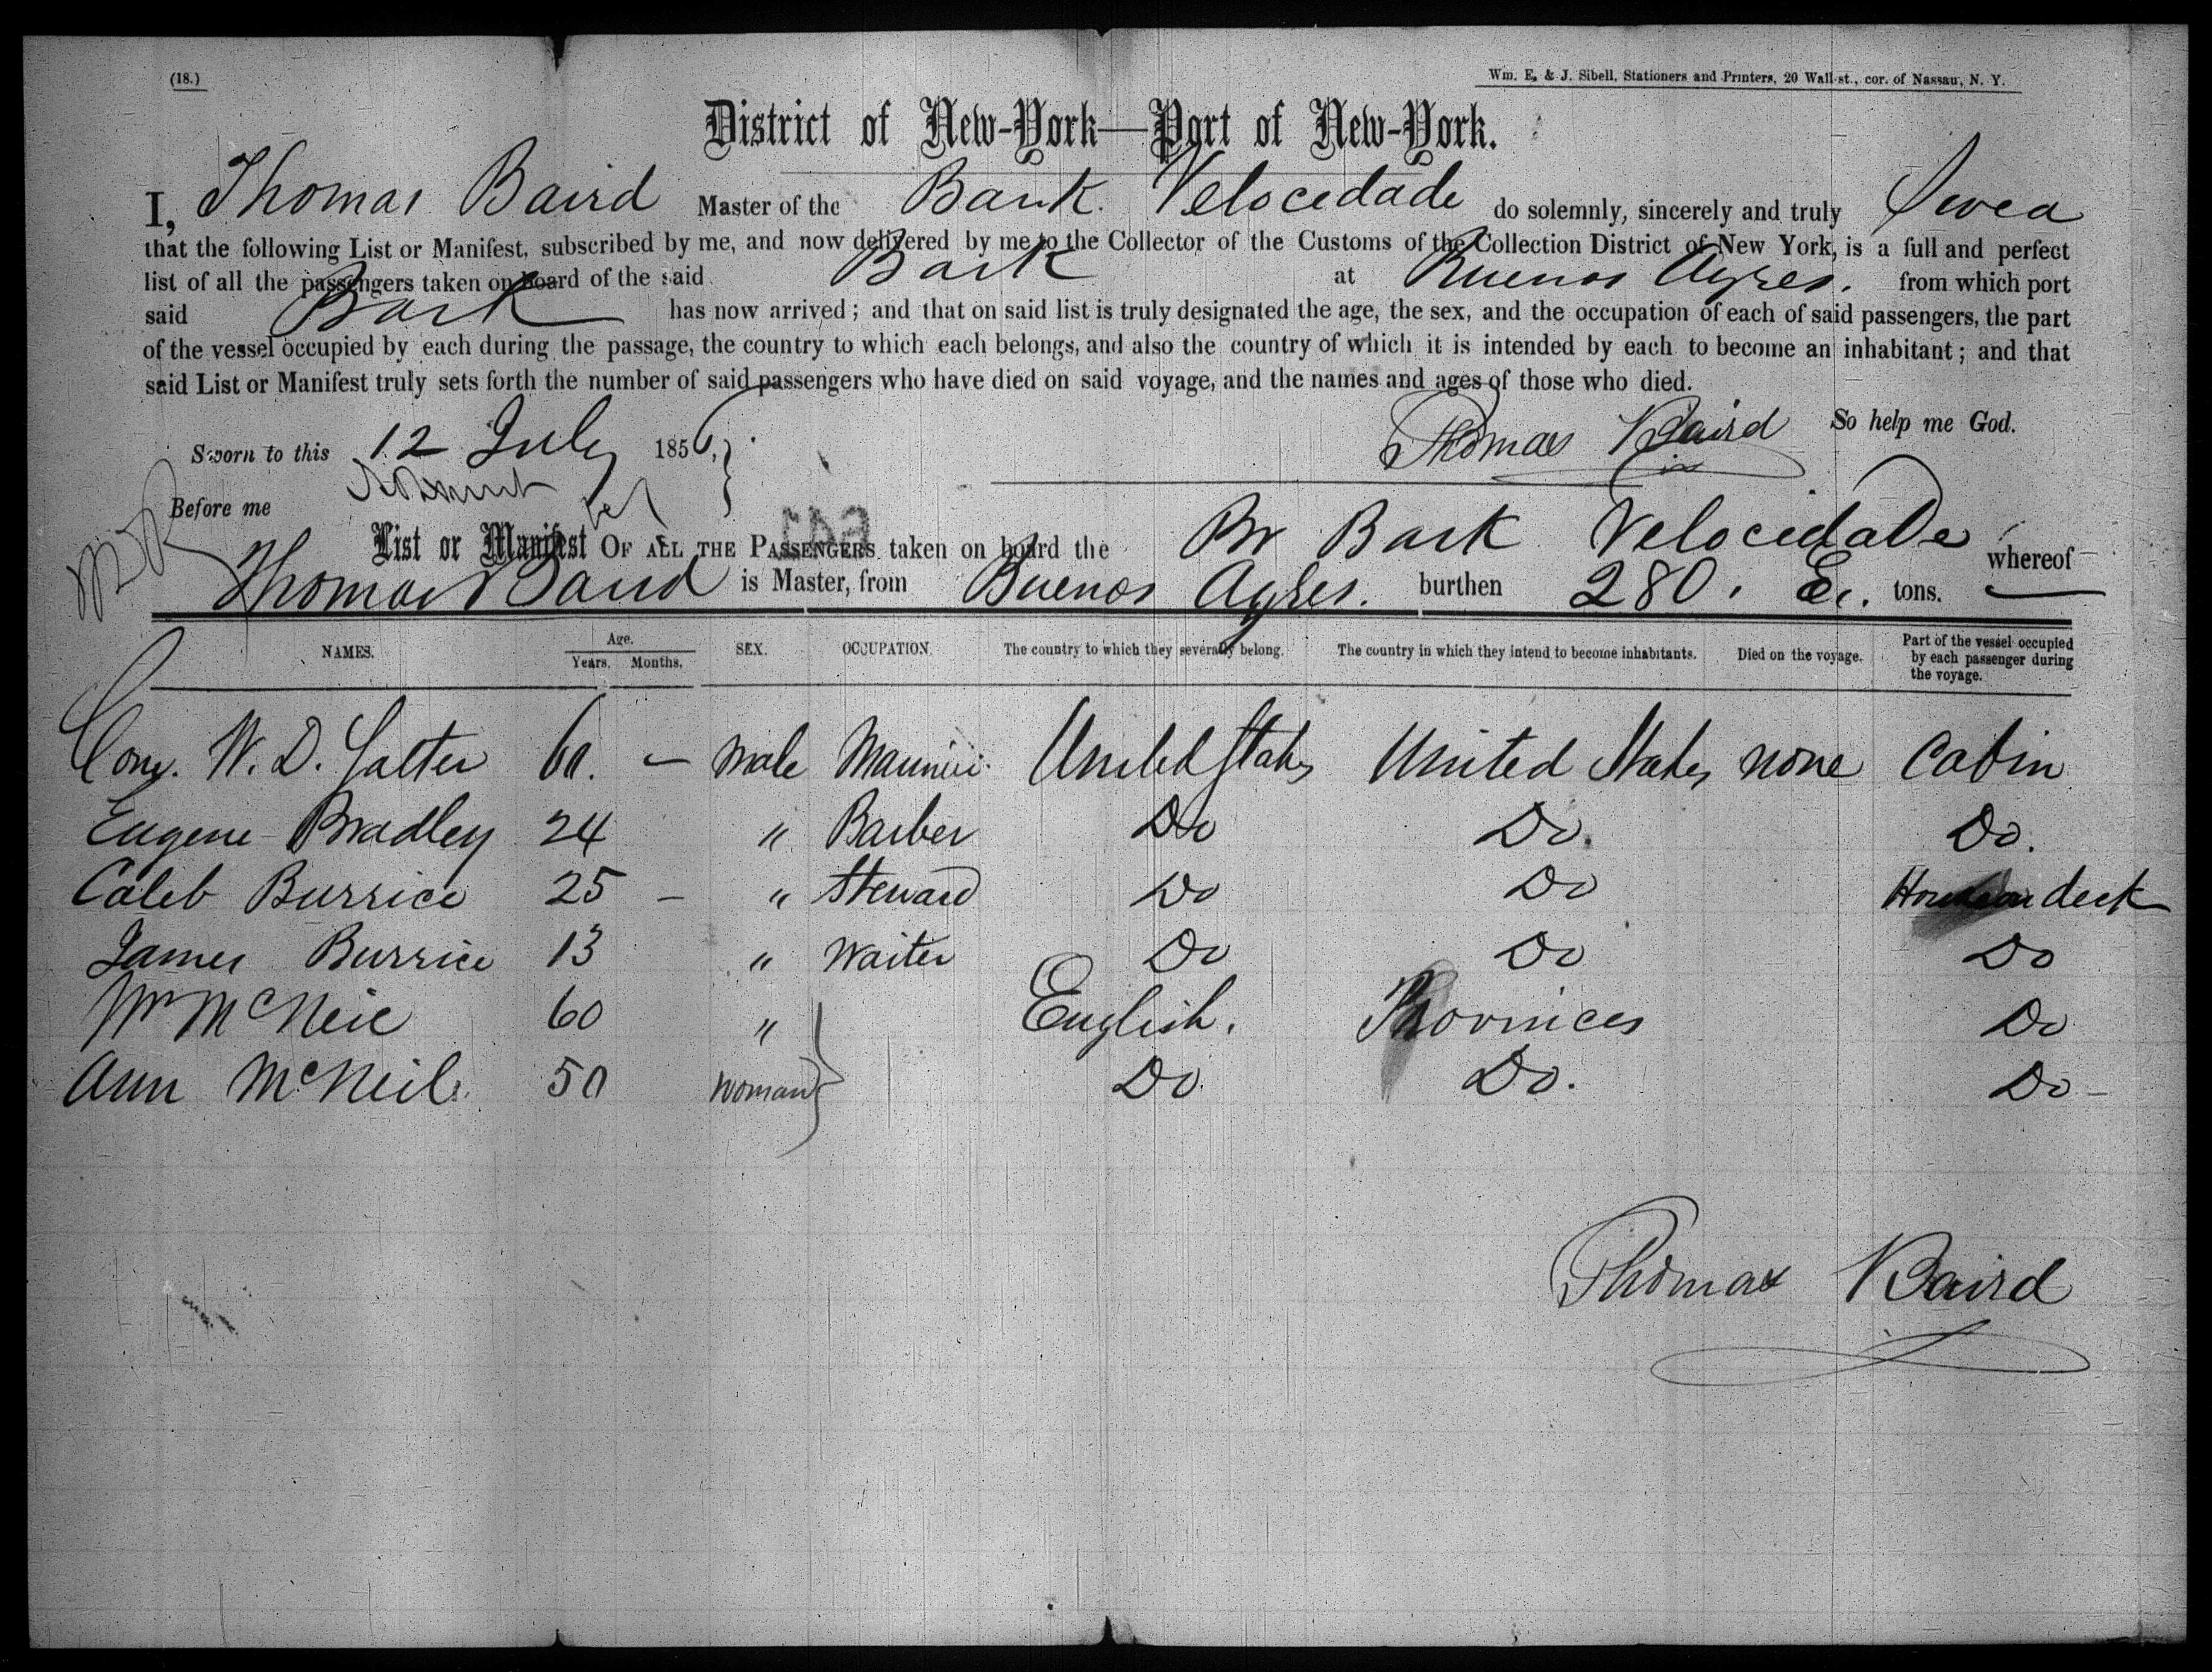 (18.)
Wm. E. & J. Sibell, Stationers and Printers, 20 Wall-st., cor. of Nassau, N. Y.
District of New-York—Port of New-York.
I, Thomas Baird Master of the Bark Velocedade do solemnly, sincerely and truly Swea
that the following List or Manifest, subscribed by me, and now delivered by me to the Collector of the Customs of the Collection District of New York, is a full and perfect
list of all the passengers taken on board of the said Bark at Buenos Ayres. from which port
said Bark has now arrived; and that on said list is truly designated the age, the sex, and the occupation of each of said passengers, the part
of the vessel occupied by each during the passage, the country to which each belongs, and also the country of which it is intended by each to become an inhabitant; and that
said List or Manifest truly sets forth the number of said passengers who have died on said voyage, and the names and ages of those who died.
Thomas Baird So help me God.
Sworn to this 12 July 1856,
Before me
List or Manifest OF ALL THE PASSENGERS taken on board the Br Bark Velocidade whereof
Thomas Baird is Master, from Buenos Ayres. burthen 280. tons.
NAMES. Age. Years. Months. SEX. OCCUPATION. The country to which they severally belong. The country in which they intend to become inhabitants. Died on the voyage. Part of the vessel occupied by each passenger during the voyage.
W. D. Salter 60. — male United States United States none Cabin
Eugene Bradley 24 " Barber Do Do. Do.
Caleb Burrice 25 — " Steward Do Do House on deck
James Burrice 13 " Waiter Do Do Do
Wm McNeil 60 " English. Provinces Do
Ann McNeil 50 woman Do. Do. Do —
Thomas Baird